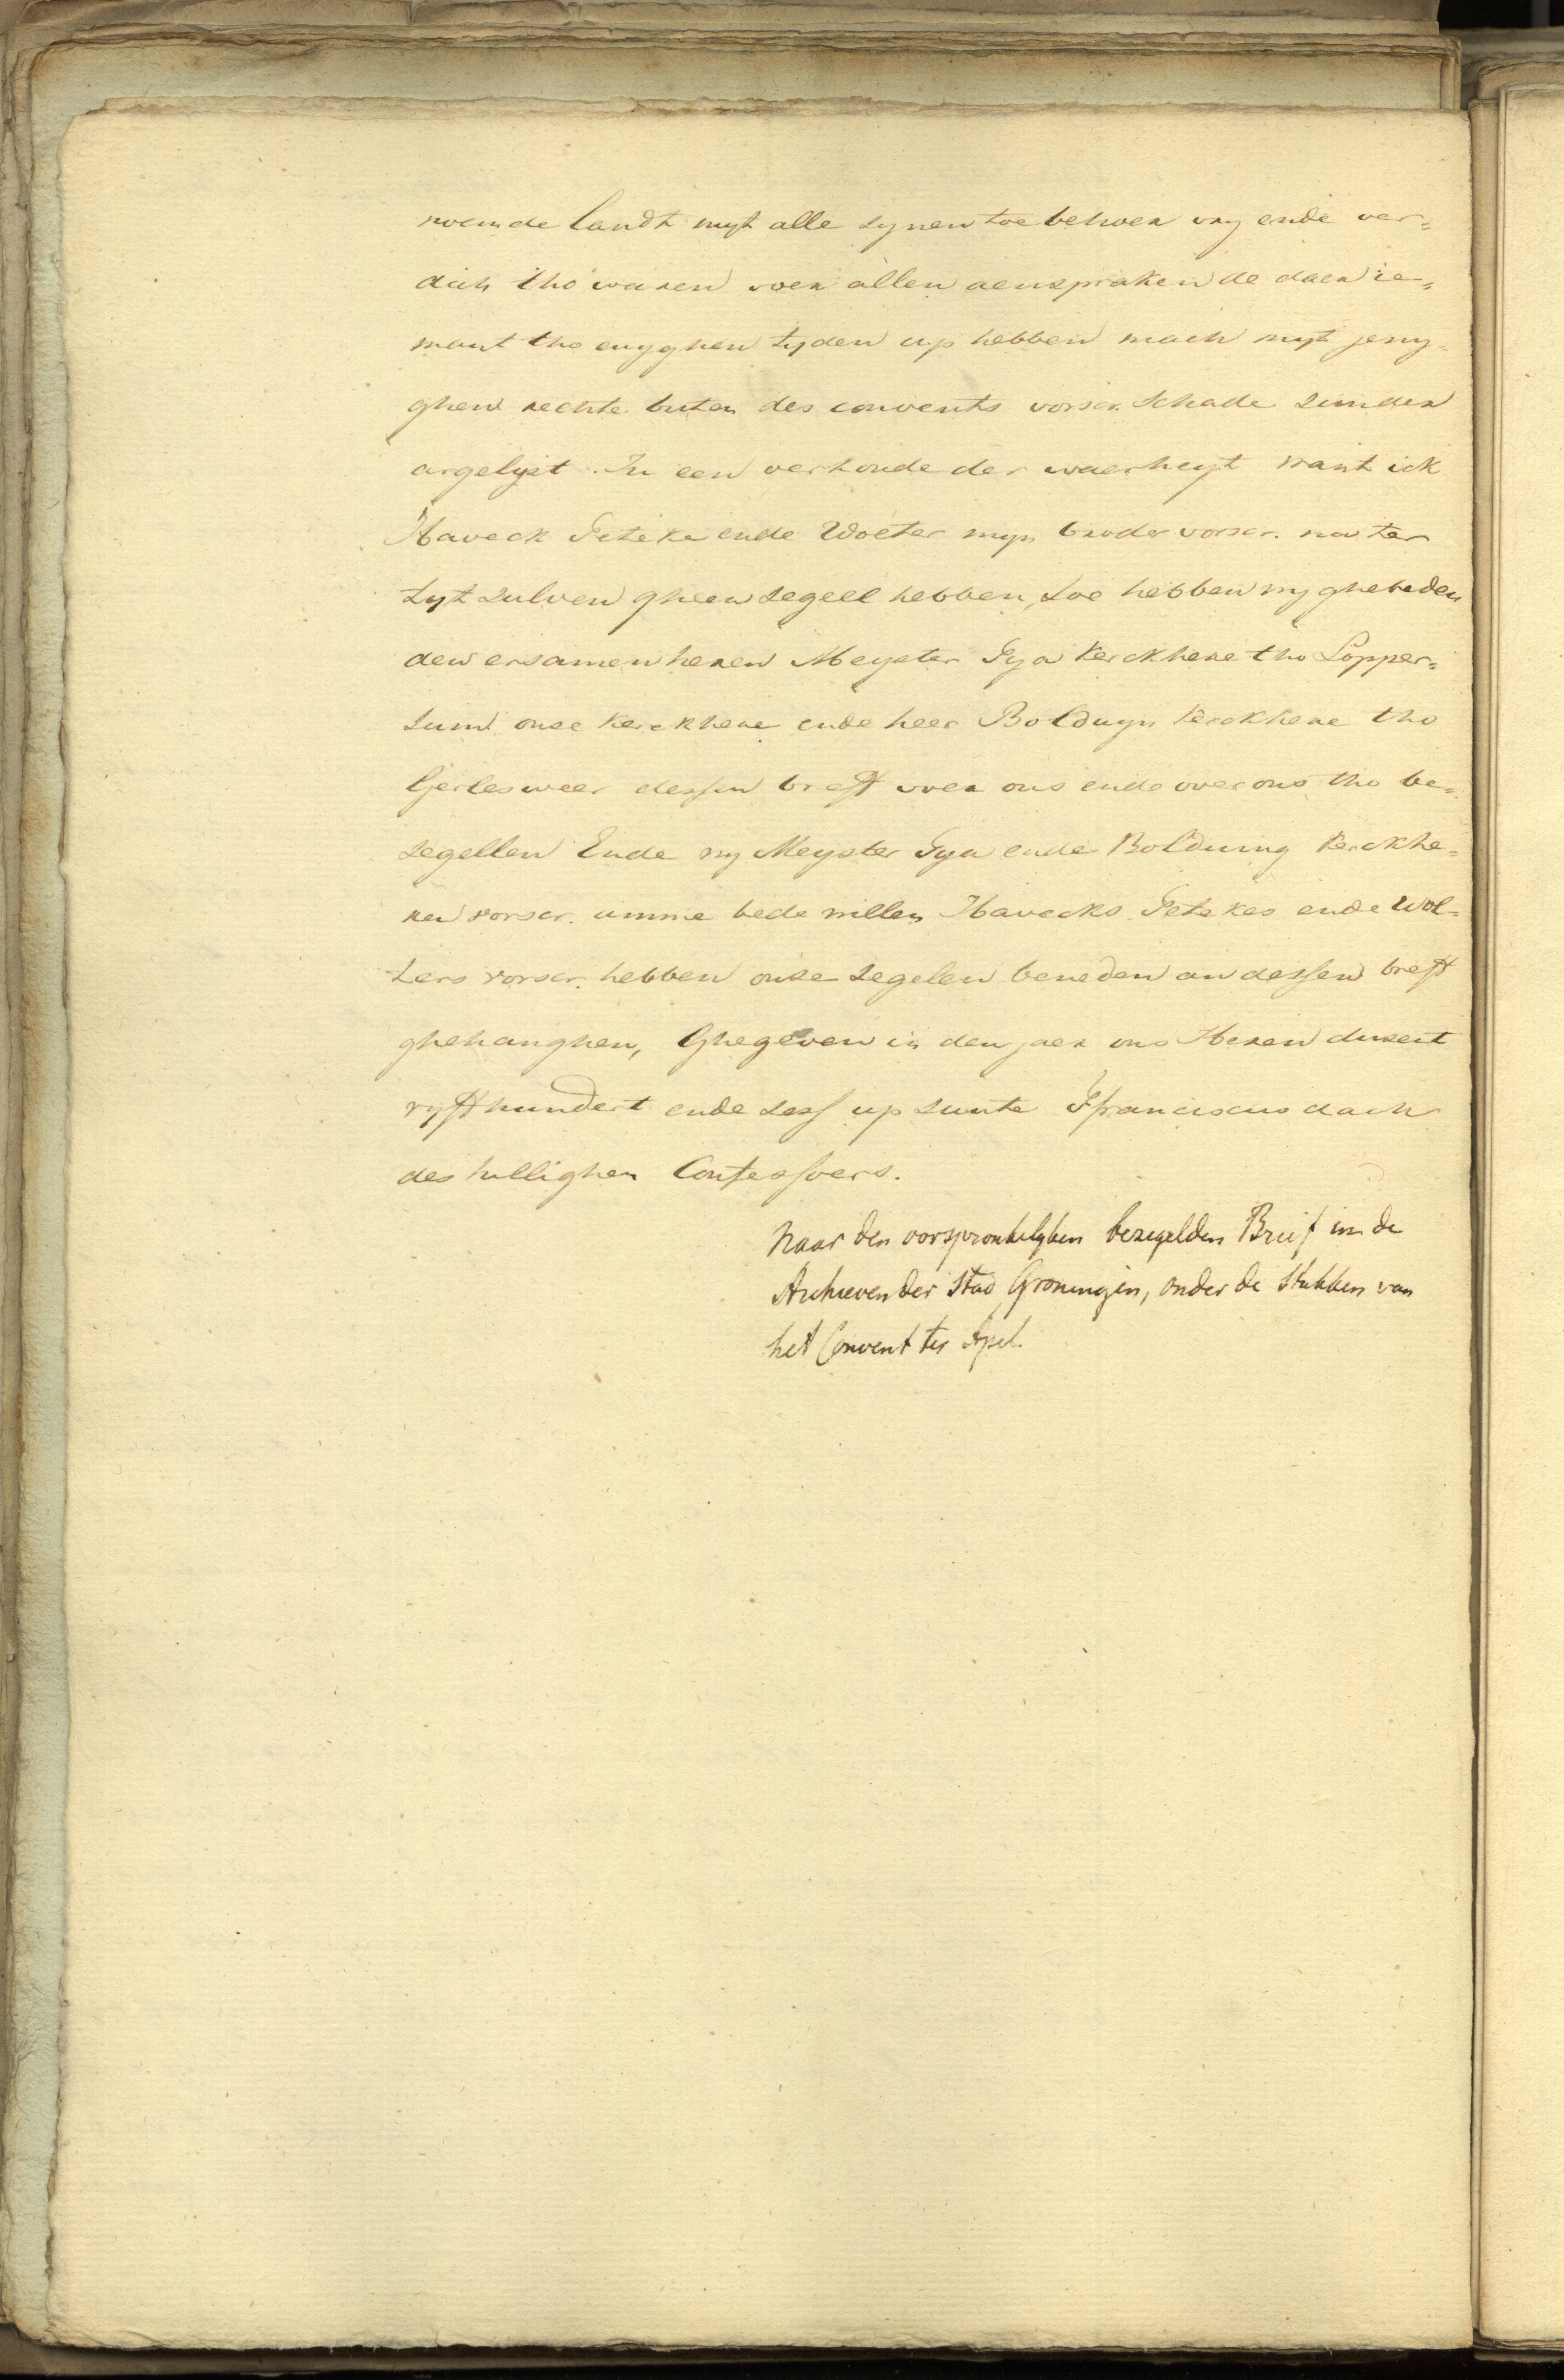 noemde landt myt alle synen toe behoer vry ende ver=
dich tho waren voer allen aenspraken de daer ie=
mant tho enyghen tyden up hebben mach myt jeny=
ghen rechte buten des convents vorscr. schade sunder
argelyst. In een oerkonde der waerheyt want ick
Haveck Peteke ende Wolter myn broder vorscr. nu ter
tyt sulven gheen segeel hebben, soe hebben wy ghebeden
den ersamen heren Meyster Pya kerckhere tho Lopper=
sum onse kerckhere ende heer Bolduyn kerckhere tho
Tjerlesweer dessen breff voer ons ende over ons tho be=
segellen Ende wy Meyster Pya ende Bolduing kerckhe=
ren vorscr. umme bede willen Havecks Petekes ende Wol=
ters vorscr. hebben onse segelen beneden an dessen breff
ghehanghen, Ghegeven in den jaer ons Heren dusent
vyffhundert ende sess up sunte Ffranciscus dach
des hillighen Confessoers.
Naar den oorspronkelyken bezegelden Brief in de
Archieven der Stad Groningen, onder de Stukken van
het Convent ter Apel.